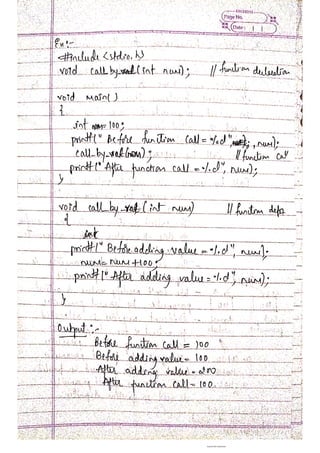 Page No.
Date: | |
Ex:-
#include <stdio.h>
void call_by_val(int num); // function declaration
void main()
{
int num=100;
printf("Before function call = %d", num);
call_by_val(num); // function call
printf("After function call = %d", num);
}
void call_by_val(int num) // function defn
{
printf("Before adding value = %d", num);
num = num+100;
printf("After adding value = %d", num);
}
Output :-
Before function call = 100
Before adding value = 100
After adding value = 200
After function call = 100.